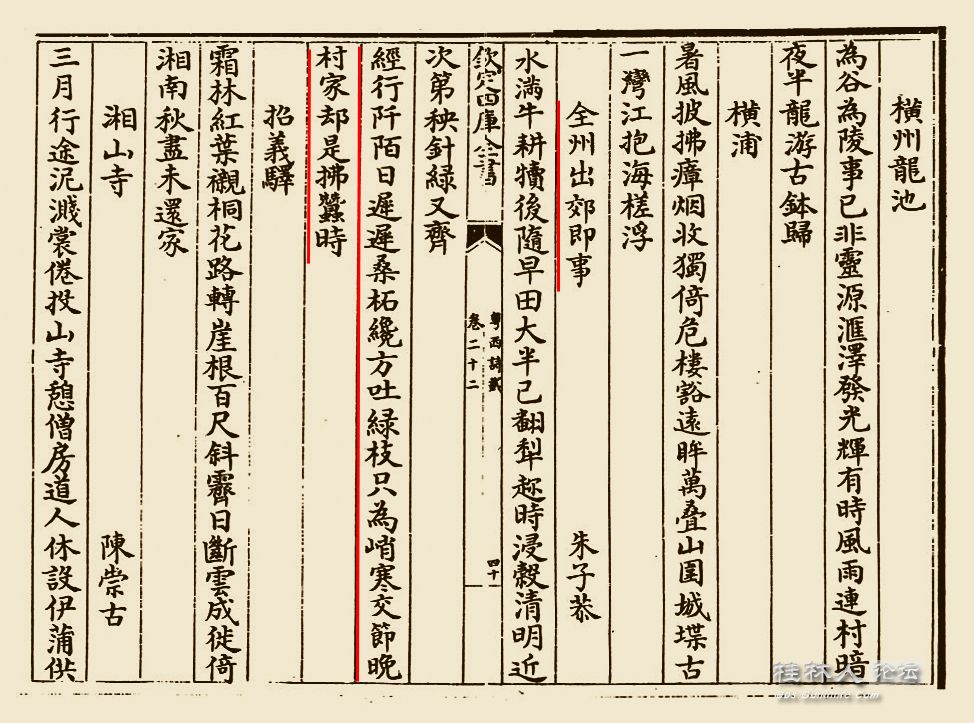 橫州龍池
為谷為陵事已非靈源滙澤發光輝有時風雨連村暗
夜半龍游古鉢歸
橫浦
暑風披拂瘴烟收獨倚危樓豁遠眸萬疊山圍城堞古
一灣江抱海槎浮
全州出郊即事
朱子恭
水滿牛耕犢後隨早田大半已翻犁趂時浸榖清明近
欽定四庫全書
粤西詩載
卷二十二
四十一
次第秧針緑又齊
經行阡陌日遲遲桑柘纔方吐緑枝只為峭寒交節晚
村家却是拂蠶時
招義驛
霜林紅葉襯桐花路轉崖根百尺斜霽日斷雲成徙倚
湘南秋盡未還家
湘山寺
陳崇古
三月行途泥濺裳倦投山寺憩僧房道人休設伊蒲供
桂林人论坛